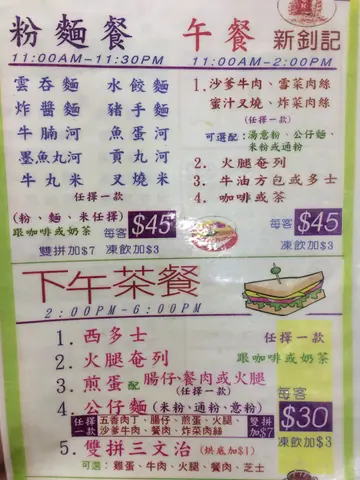 粉麵餐
11:00AM-11:30PM
雲吞麵 水餃麵
炸醬麵 豬手麵
牛腩河 魚蛋河
墨魚丸河 貢丸河
牛丸米 叉燒米
任擇一款
(粉、麵、米任擇)
跟咖啡或奶茶
每客 $45
雙拼加$7 凍飲加$3
午餐 新釗記
11:00AM-2:00PM
1. 沙爹牛肉、雪菜肉絲
蜜汁叉燒、炸菜肉絲
(任擇一款)
可選配：湯意粉、公仔麵、
米粉或通粉
2. 火腿奄列
3. 牛油方包或多士
4. 咖啡或茶
每客 $45
凍飲加$3
下午茶餐
2:00PM-6:00PM
1. 西多士
2. 火腿奄列
3. 煎蛋配 腸仔、餐肉或火腿
(任擇一款)
4. 公仔麵(米粉、通粉、意粉)
任擇一款 五香肉丁、腸仔、煎蛋、火腿、
沙爹牛肉、餐肉、炸菜肉絲
雙拼加$7
5. 雙拼三文治(烘底加$1)
可選：雞蛋、牛肉、火腿、餐肉、芝士
任擇一款
跟咖啡或奶茶
每客
$30
凍飲加$3